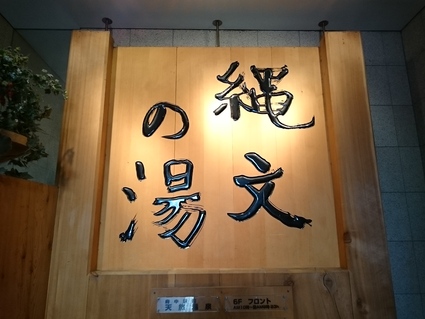 縄文
の湯
天然温泉
5F フロント